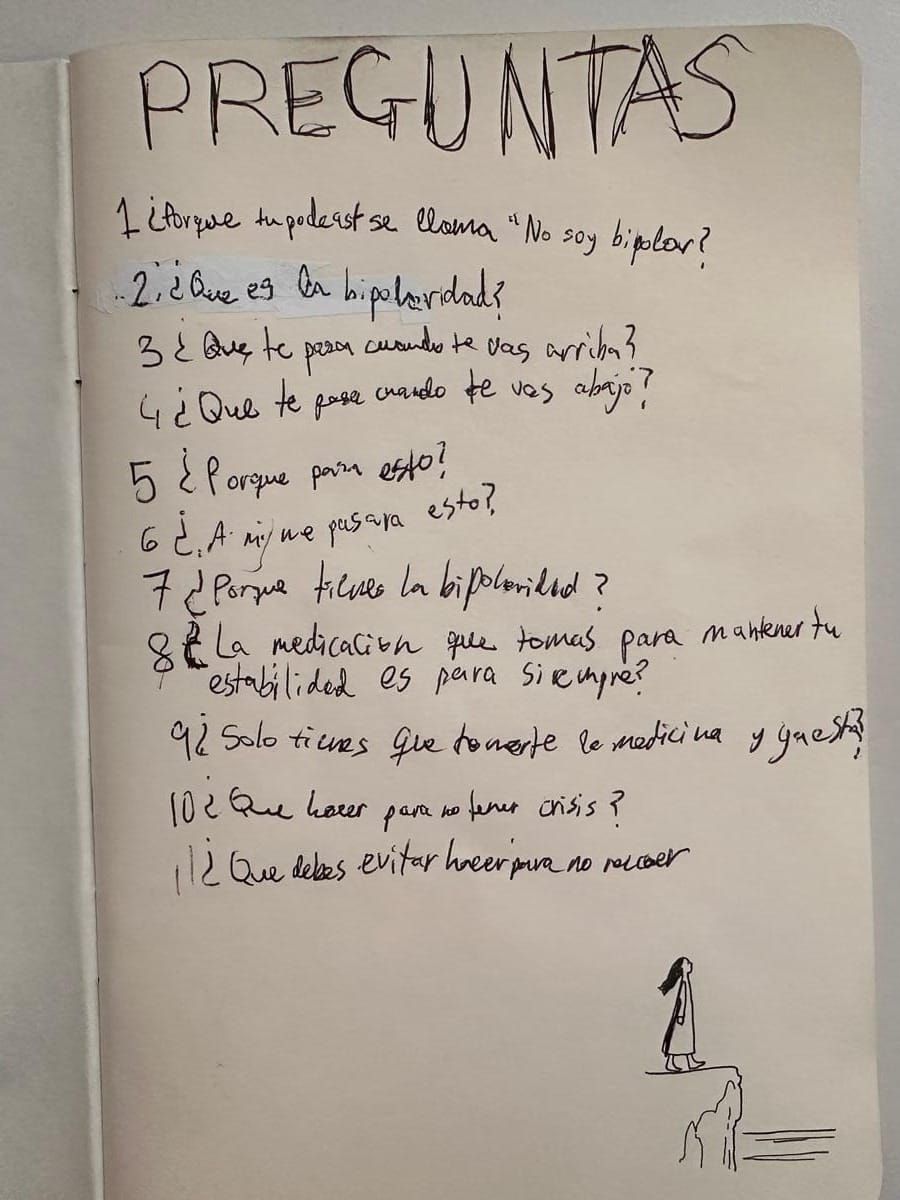 PREGUNTAS
1 ¿Porque tu podcast se llama "No soy bipolar?
2. ¿Que es la bipolaridad?
3 ¿Que te pasa cuando te vas arriba?
4 ¿Que te pasa cuando te vas abajo?
5 ¿Porque pasa esto?
6 ¿A mi me pasara esto?
7 ¿Porque tienes la bipolaridad?
8 ¿La medicacion que tomas para mantener tu
estabilidad es para siempre?
9 ¿Solo tienes que tomarte la medicina y ya esta?
10 ¿Que hacer para no tener crisis?
11 ¿Que debes evitar hacer para no recaer